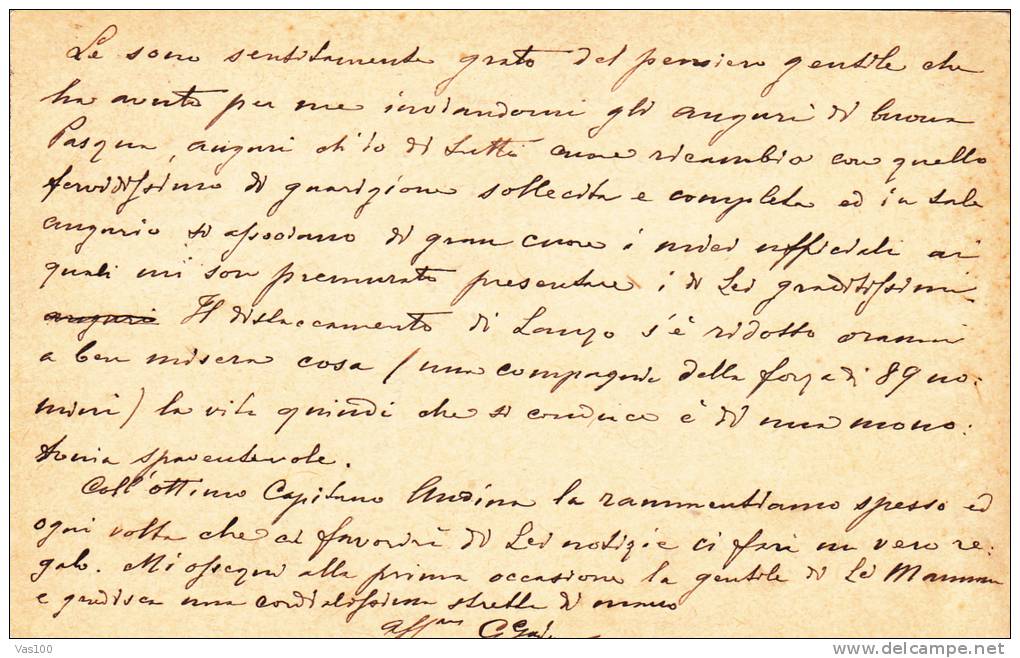 Le sono sentitamente grato del pensiero gentile che
ha avuto per me inviandomi gli auguri di buona
Pasqua, auguri ch'io di tutto cuore ricambio con quello
fervidissimo di guarigione sollecita e completa ed in tale
augurio si associano di gran cuore i miei ufficiali ai
quali mi son premurato presentare i di Lei graditissimi
auguri Il distaccamento di Lanzo s'è ridotto oramai
a ben misera cosa (una compagnia della forza di 89 uo:
mini) la vita quindi che si conduce è di una mono:
tonia spaventevole.
Coll'ottimo Capitano la rammentiamo spesso ed
ogni volta che ci favorirà di Lei notizie ci farà un vero re:
galo. Mi ossequi alla prima occasione la gentile di Lei Mamma
e gradisca una cordialissima stretta di mano
Aff.mo
Vas100
delcampe.net